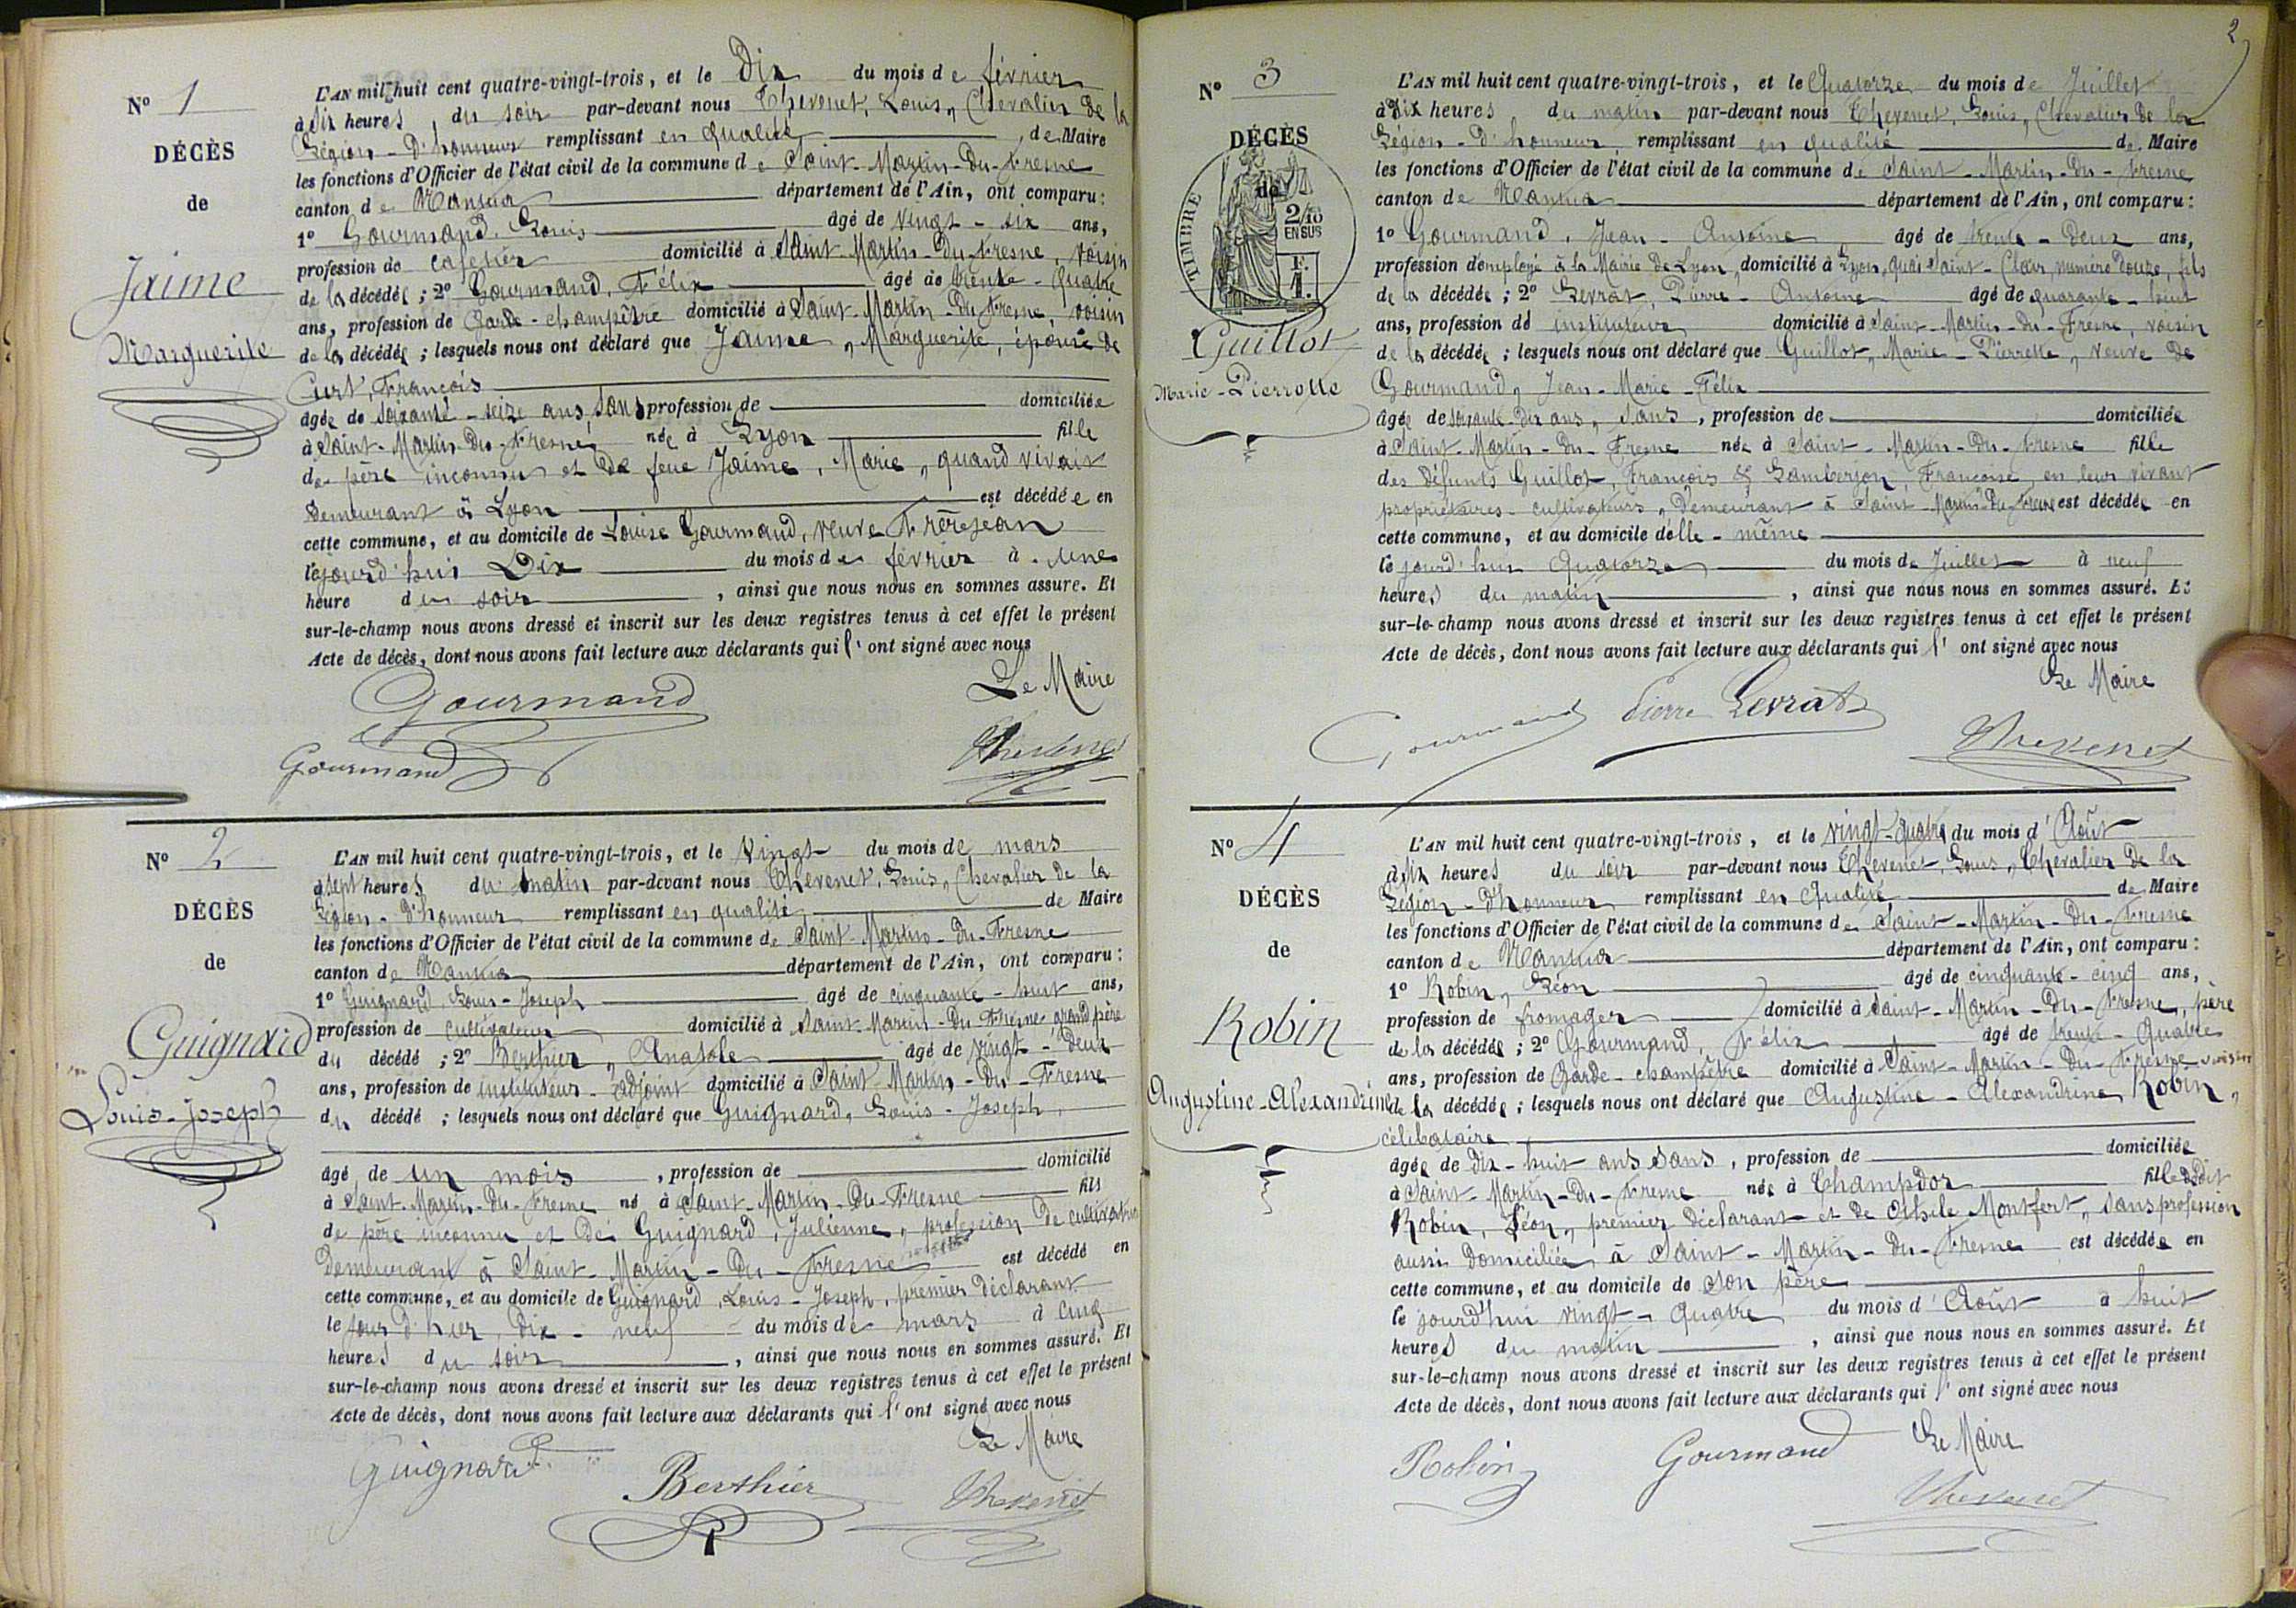 N° 1
DÉCÈS
de
Jaime
Marguerite
L'AN mil huit cent quatre-vingt-trois, et le Dix du mois de février
à six heures du soir par-devant nous Thevenet, Louis, Chevalier de la
Légion-d'honneur remplissant en qualité de Maire
les fonctions d'Officier de l'état civil de la commune de Saint-Martin-du-Fresne
canton de Nantua département de l'Ain, ont comparu:
1° Gourmand, Louis âgé de vingt-six ans,
profession de cafetier domicilié à Saint-Martin-du-Fresne, voisin
de la décédée; 2° Gourmand, Félix âgé de trente-quatre
ans, profession de Garde-champêtre domicilié à Saint-Martin-du-Fresne, voisin
de la décédée; lesquels nous ont déclaré que Jaime, Marguerite, épouse de
Curt, François
âgée de soixante-seize ans, sans profession de domiciliée
à Saint-Martin-du-Fresne, née à Lyon fille
de père inconnu et de feue Jaime, Marie, quand vivait
demeurant à Lyon est décédée en
cette commune, et au domicile de Louise Gourmand, veuve Frèrejean
le jourd'hui Dix du mois de février à une
heure du soir, ainsi que nous nous en sommes assuré. Et
sur-le-champ nous avons dressé et inscrit sur les deux registres tenus à cet effet le présent
Acte de décès, dont nous avons fait lecture aux déclarants qui l'ont signé avec nous
Le Maire
Gourmand
Gourmand
Thevenet
N° 2
DÉCÈS
de
Guignard
Louis-Joseph
L'AN mil huit cent quatre-vingt-trois, et le Vingt du mois de mars
à sept heures du matin par-devant nous Thevenet, Louis, Chevalier de la
Légion-d'honneur remplissant en qualité de Maire
les fonctions d'Officier de l'état civil de la commune de Saint-Martin-du-Fresne
canton de Nantua département de l'Ain, ont comparu:
1° Guignard, Louis-Joseph âgé de cinquante-huit ans,
profession de cultivateur domicilié à Saint-Martin-du-Fresne, grand père
du décédé; 2° Berthier, Anatole âgé de vingt-deux
ans, profession de instituteur-adjoint domicilié à Saint-Martin-du-Fresne
du décédé; lesquels nous ont déclaré que Guignard, Louis-Joseph,
âgé de un mois, profession de domicilié
à Saint-Martin-du-Fresne né à Saint-Martin-du-Fresne fils
de père inconnu et de Guignard, Julienne, profession de cultivatrice
demeurant à Saint-Martin-du-Fresne est décédé en
cette commune, et au domicile de Guignard, Louis-Joseph, premier déclarant
le jour d'hier, dix-neuf du mois de mars à cinq
heures du soir, ainsi que nous nous en sommes assuré. Et
sur-le-champ nous avons dressé et inscrit sur les deux registres tenus à cet effet le présent
Acte de décès, dont nous avons fait lecture aux déclarants qui l'ont signé avec nous
Le Maire
Guignard
Berthier
Thevenet
2
N° 3
DÉCÈS
de
TIMBRE
2/10
EN SUS
F.
1.
Guillot
Marie-Pierrette
L'AN mil huit cent quatre-vingt-trois, et le Quatorze du mois de Juillet
à dix heures du matin par-devant nous Thevenet, Louis, Chevalier de la
Légion-d'honneur, remplissant en qualité de Maire
les fonctions d'Officier de l'état civil de la commune de Saint-Martin-du-Fresne
canton de Nantua département de l'Ain, ont comparu:
1° Gourmand, Jean-Antoine âgé de trente-deux ans,
profession d'employé à la Mairie de Lyon, domicilié à Lyon, quai Saint-Clair, numéro douze, fils
de la décédée; 2° Levrat, Pierre-Antoine âgé de quarante-huit
ans, profession de instituteur domicilié à Saint-Martin-du-Fresne, voisin
de la décédée; lesquels nous ont déclaré que Guillot, Marie-Pierrette, veuve de
Gourmand, Jean-Marie-Félix
âgée de soixante-dix ans, sans, profession de domiciliée
à Saint-Martin-du-Fresne née à Saint-Martin-du-Fresne fille
des défunts Guillot, François & Lamberjon, Françoise, en leur vivant
propriétaires-cultivateurs, demeurant à Saint-Martin-du-Fresne est décédée en
cette commune, et au domicile d'elle-même
le jourd'hui Quatorze du mois de Juillet à neuf
heures du matin, ainsi que nous nous en sommes assuré. Et
sur-le-champ nous avons dressé et inscrit sur les deux registres tenus à cet effet le présent
Acte de décès, dont nous avons fait lecture aux déclarants qui l'ont signé avec nous
Le Maire
Gourmand Pierre Levrat
Thevenet
N° 4
DÉCÈS
de
Robin
Augustine-Alexandrine
L'AN mil huit cent quatre-vingt-trois, et le vingt-quatre du mois d'Août
à six heures du soir par-devant nous Thevenet, Louis, Chevalier de la
Légion-d'honneur remplissant en Qualité de Maire
les fonctions d'Officier de l'état civil de la commune de Saint-Martin-du-Fresne
canton de Nantua département de l'Ain, ont comparu:
1° Robin, Léon âgé de cinquante-cinq ans,
profession de fromager domicilié à Saint-Martin-du-Fresne, père
de la décédée; 2° Gourmand, Félix âgé de trente-quatre
ans, profession de Garde-champêtre domicilié à Saint-Martin-du-Fresne voisin
de la décédée; lesquels nous ont déclaré que Augustine-Alexandrine Robin,
célibataire
âgée de dix-huit ans sans, profession de domiciliée
à Saint-Martin-du-Fresne née à Champdor fille dudit
Robin, Léon, premier déclarant et de Othile Montfort, sans profession
aussi domiciliée à Saint-Martin-du-Fresne est décédée en
cette commune, et au domicile de son père
le jourd'hui vingt-quatre du mois d'Août à huit
heures du matin, ainsi que nous nous en sommes assuré. Et
sur-le-champ nous avons dressé et inscrit sur les deux registres tenus à cet effet le présent
Acte de décès, dont nous avons fait lecture aux déclarants qui l'ont signé avec nous
Le Maire
Robin
Gourmand
Thevenet